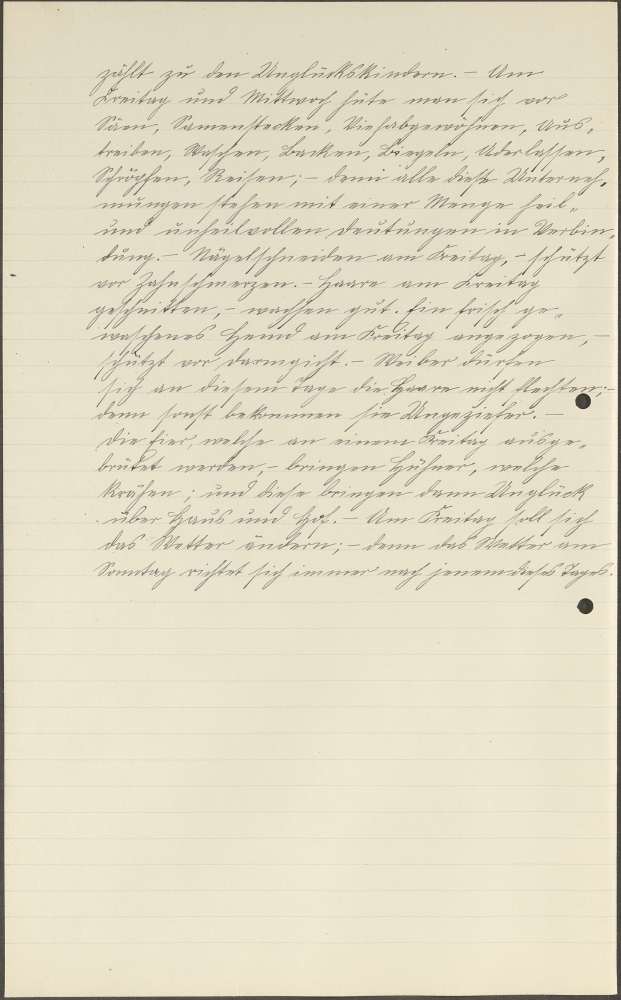 zählt zu den Unglückskindern. – Am
Freitag und Mittwoch hüte man sich vor
Säen, Samenstecken, Viehabgewöhnen, Aus-
treiben, Waschen, Backen, Bügeln, Aderlassen,
Schröpfen, Reisen; – denn alle diese Unterneh-
mungen stehen mit einer Menge heil-
und unheilvollen Deutungen in Verbin-
dung. – Nägelschneiden am Freitag, – schützt
vor Zahnschmerzen. – Haare am Freitag
geschnitten, – wachsen gut. Ein frisch ge-
waschenes Hemd am Freitag angezogen, –
schützt vor Darmgicht. – Weiber dürfen
sich an diesem Tage die Haare nicht flechten; –
denn sonst bekommen sie Ungeziefer. –
Die Eier, welche an einem Freitag ausge-
brütet werden, – bringen Hühner, welche
krähen; und diese bringen dann Unglück
über Haus und Hof. – Am Freitag soll sich
das Wetter ändern; – denn das Wetter am
Sonntag richtet sich immer nach jenem dieses Tages.